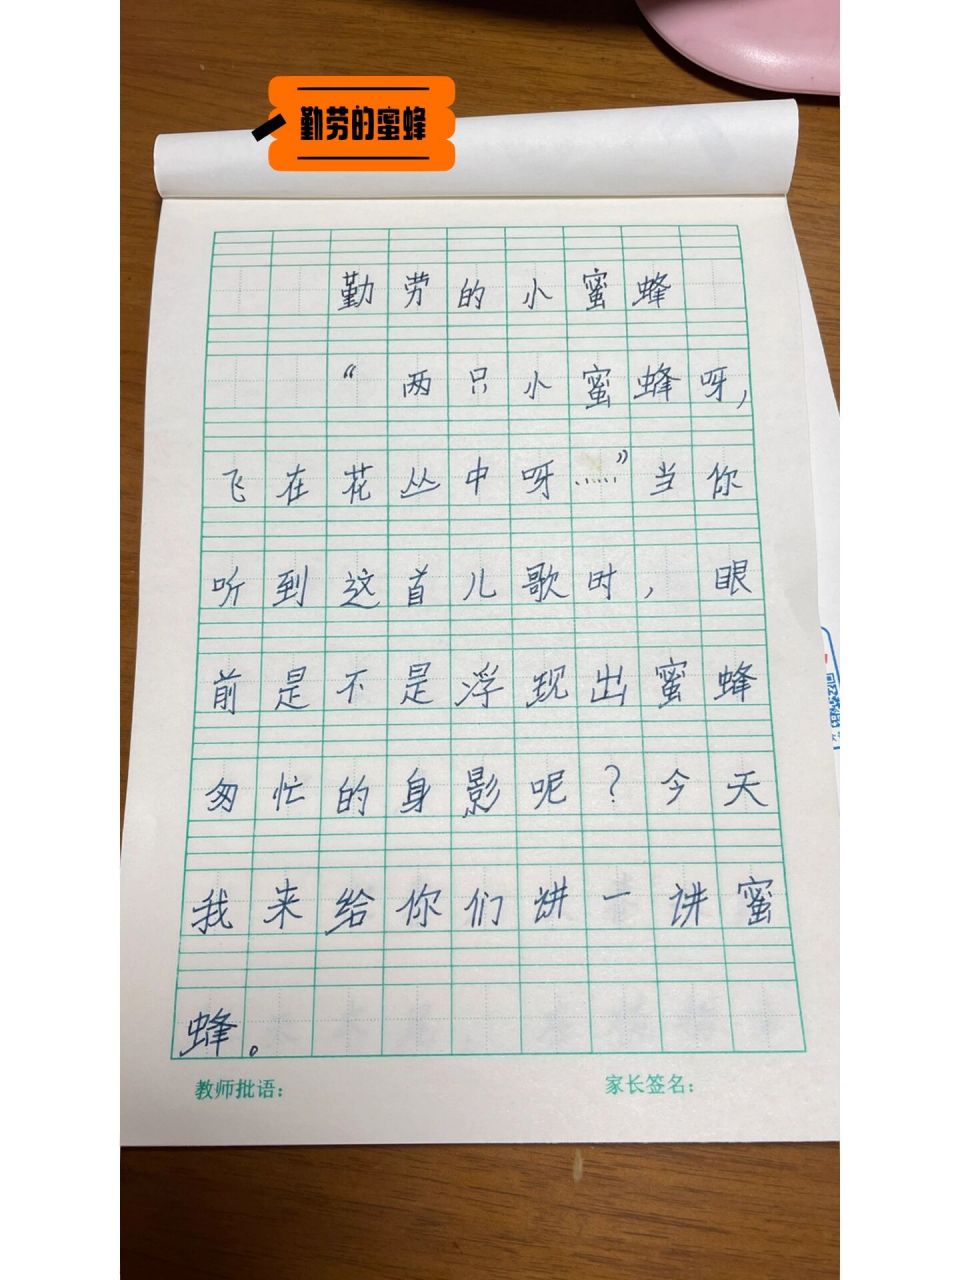 勤劳的蜜蜂
勤劳的小蜜蜂
“两只小蜜蜂呀，
飞在花丛中呀……”当你
听到这首儿歌时，眼
前是不是浮现出蜜蜂
匆忙的身影呢？今天
我来给你们讲一讲蜜
蜂。
教师批语：
家长签名：